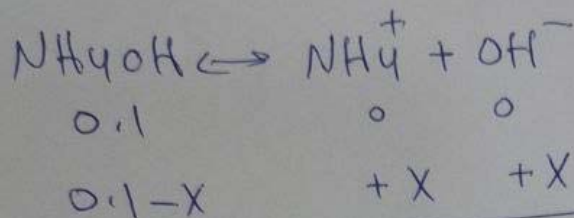 NH4OH ⟷ NH4⁺ + OH⁻
0.1 0 0
0.1-X +X +X